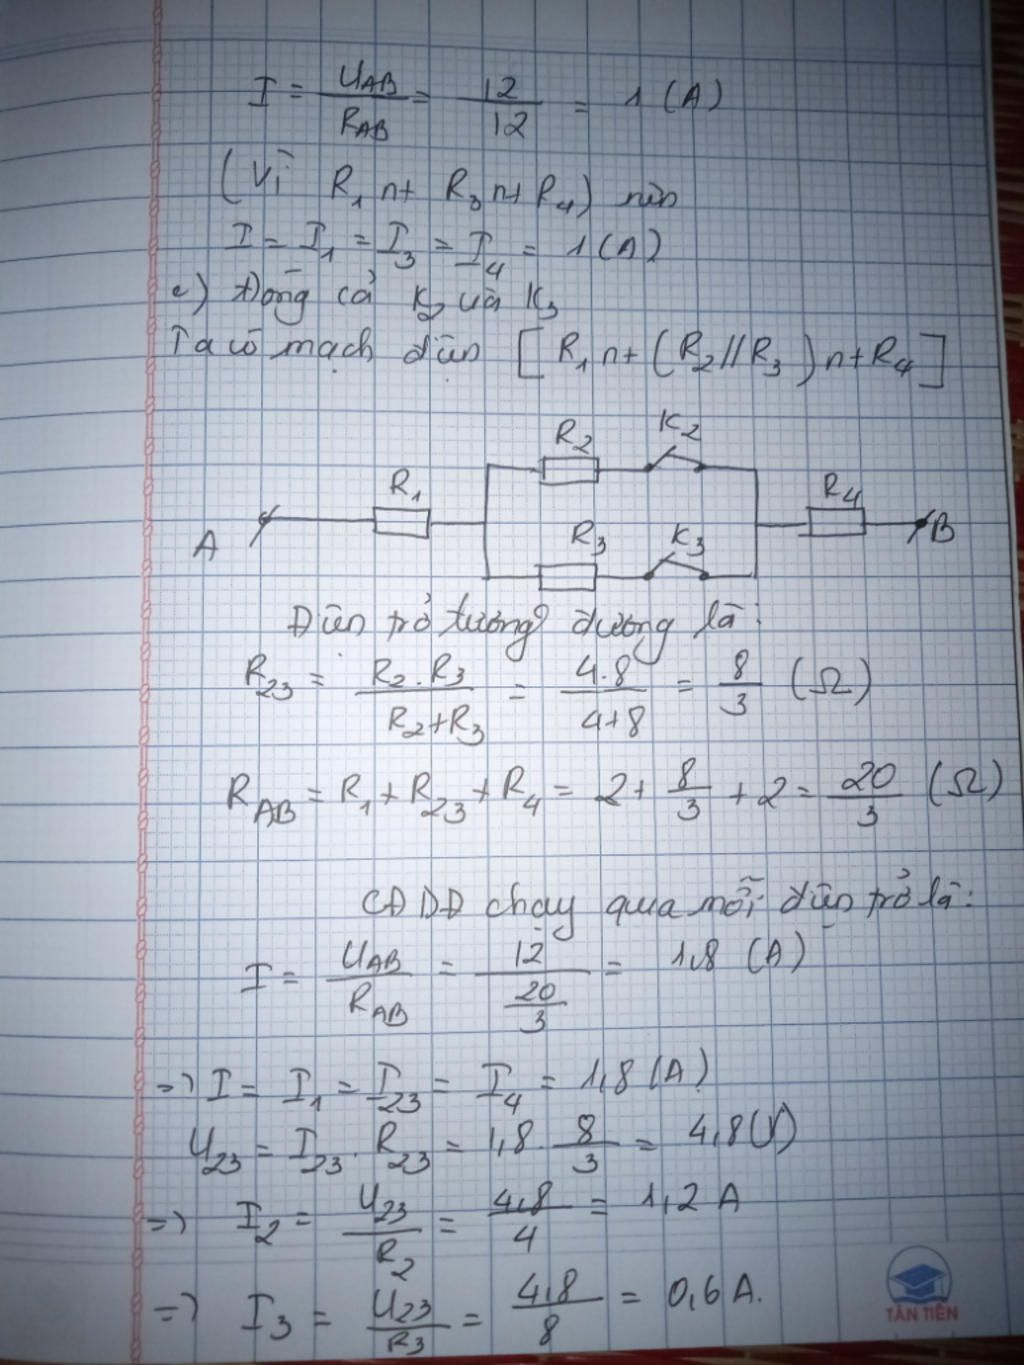 I = U_AB / R_AB = 12 / 12 = 1 (A)
(Vì R₁ nt R₃ nt R₄) nên
I = I₁ = I₃ = I₄ = 1 (A)
c) Đóng cả K₂ và K₃
Ta có mạch điện [R₁ nt (R₂ // R₃) nt R₄]
R₂ K₂
R₁ R₄
A R₃ K₃ B
Điện trở tương đương là:
R₂₃ = R₂.R₃ / R₂+R₃ = 4.8 / 4+8 = 8/3 (Ω)
R_AB = R₁ + R₂₃ + R₄ = 2 + 8/3 + 2 = 20/3 (Ω)
CĐDĐ chạy qua mỗi điện trở là:
I = U_AB / R_AB = 12 / (20/3) = 1,8 (A)
=> I = I₁ = I₂₃ = I₄ = 1,8 (A)
U₂₃ = I₂₃ . R₂₃ = 1,8 . 8/3 = 4,8 (V)
=> I₂ = U₂₃ / R₂ = 4,8 / 4 = 1,2 A
=> I₃ = U₂₃ / R₃ = 4,8 / 8 = 0,6 A.
TÂN TIẾN